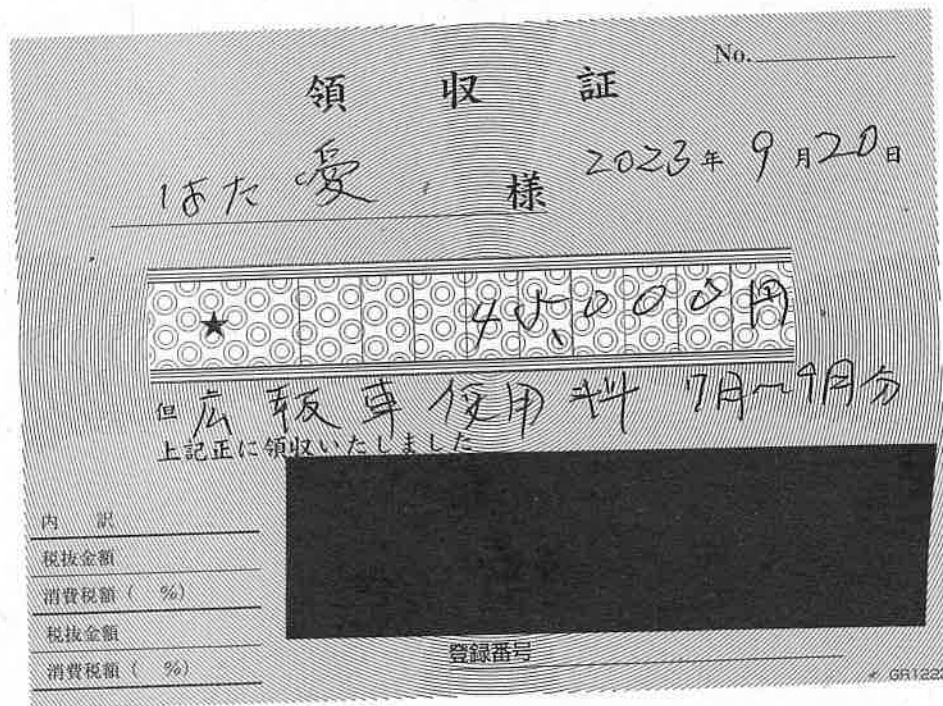 No.
領収証
2023年9月20日
はた 愛 様
★ 45,000円
但 広報車使用料 7月〜9月分
上記正に領収いたしました
内 訳
税抜金額
消費税額( %)
税抜金額
消費税額( %)
登録番号